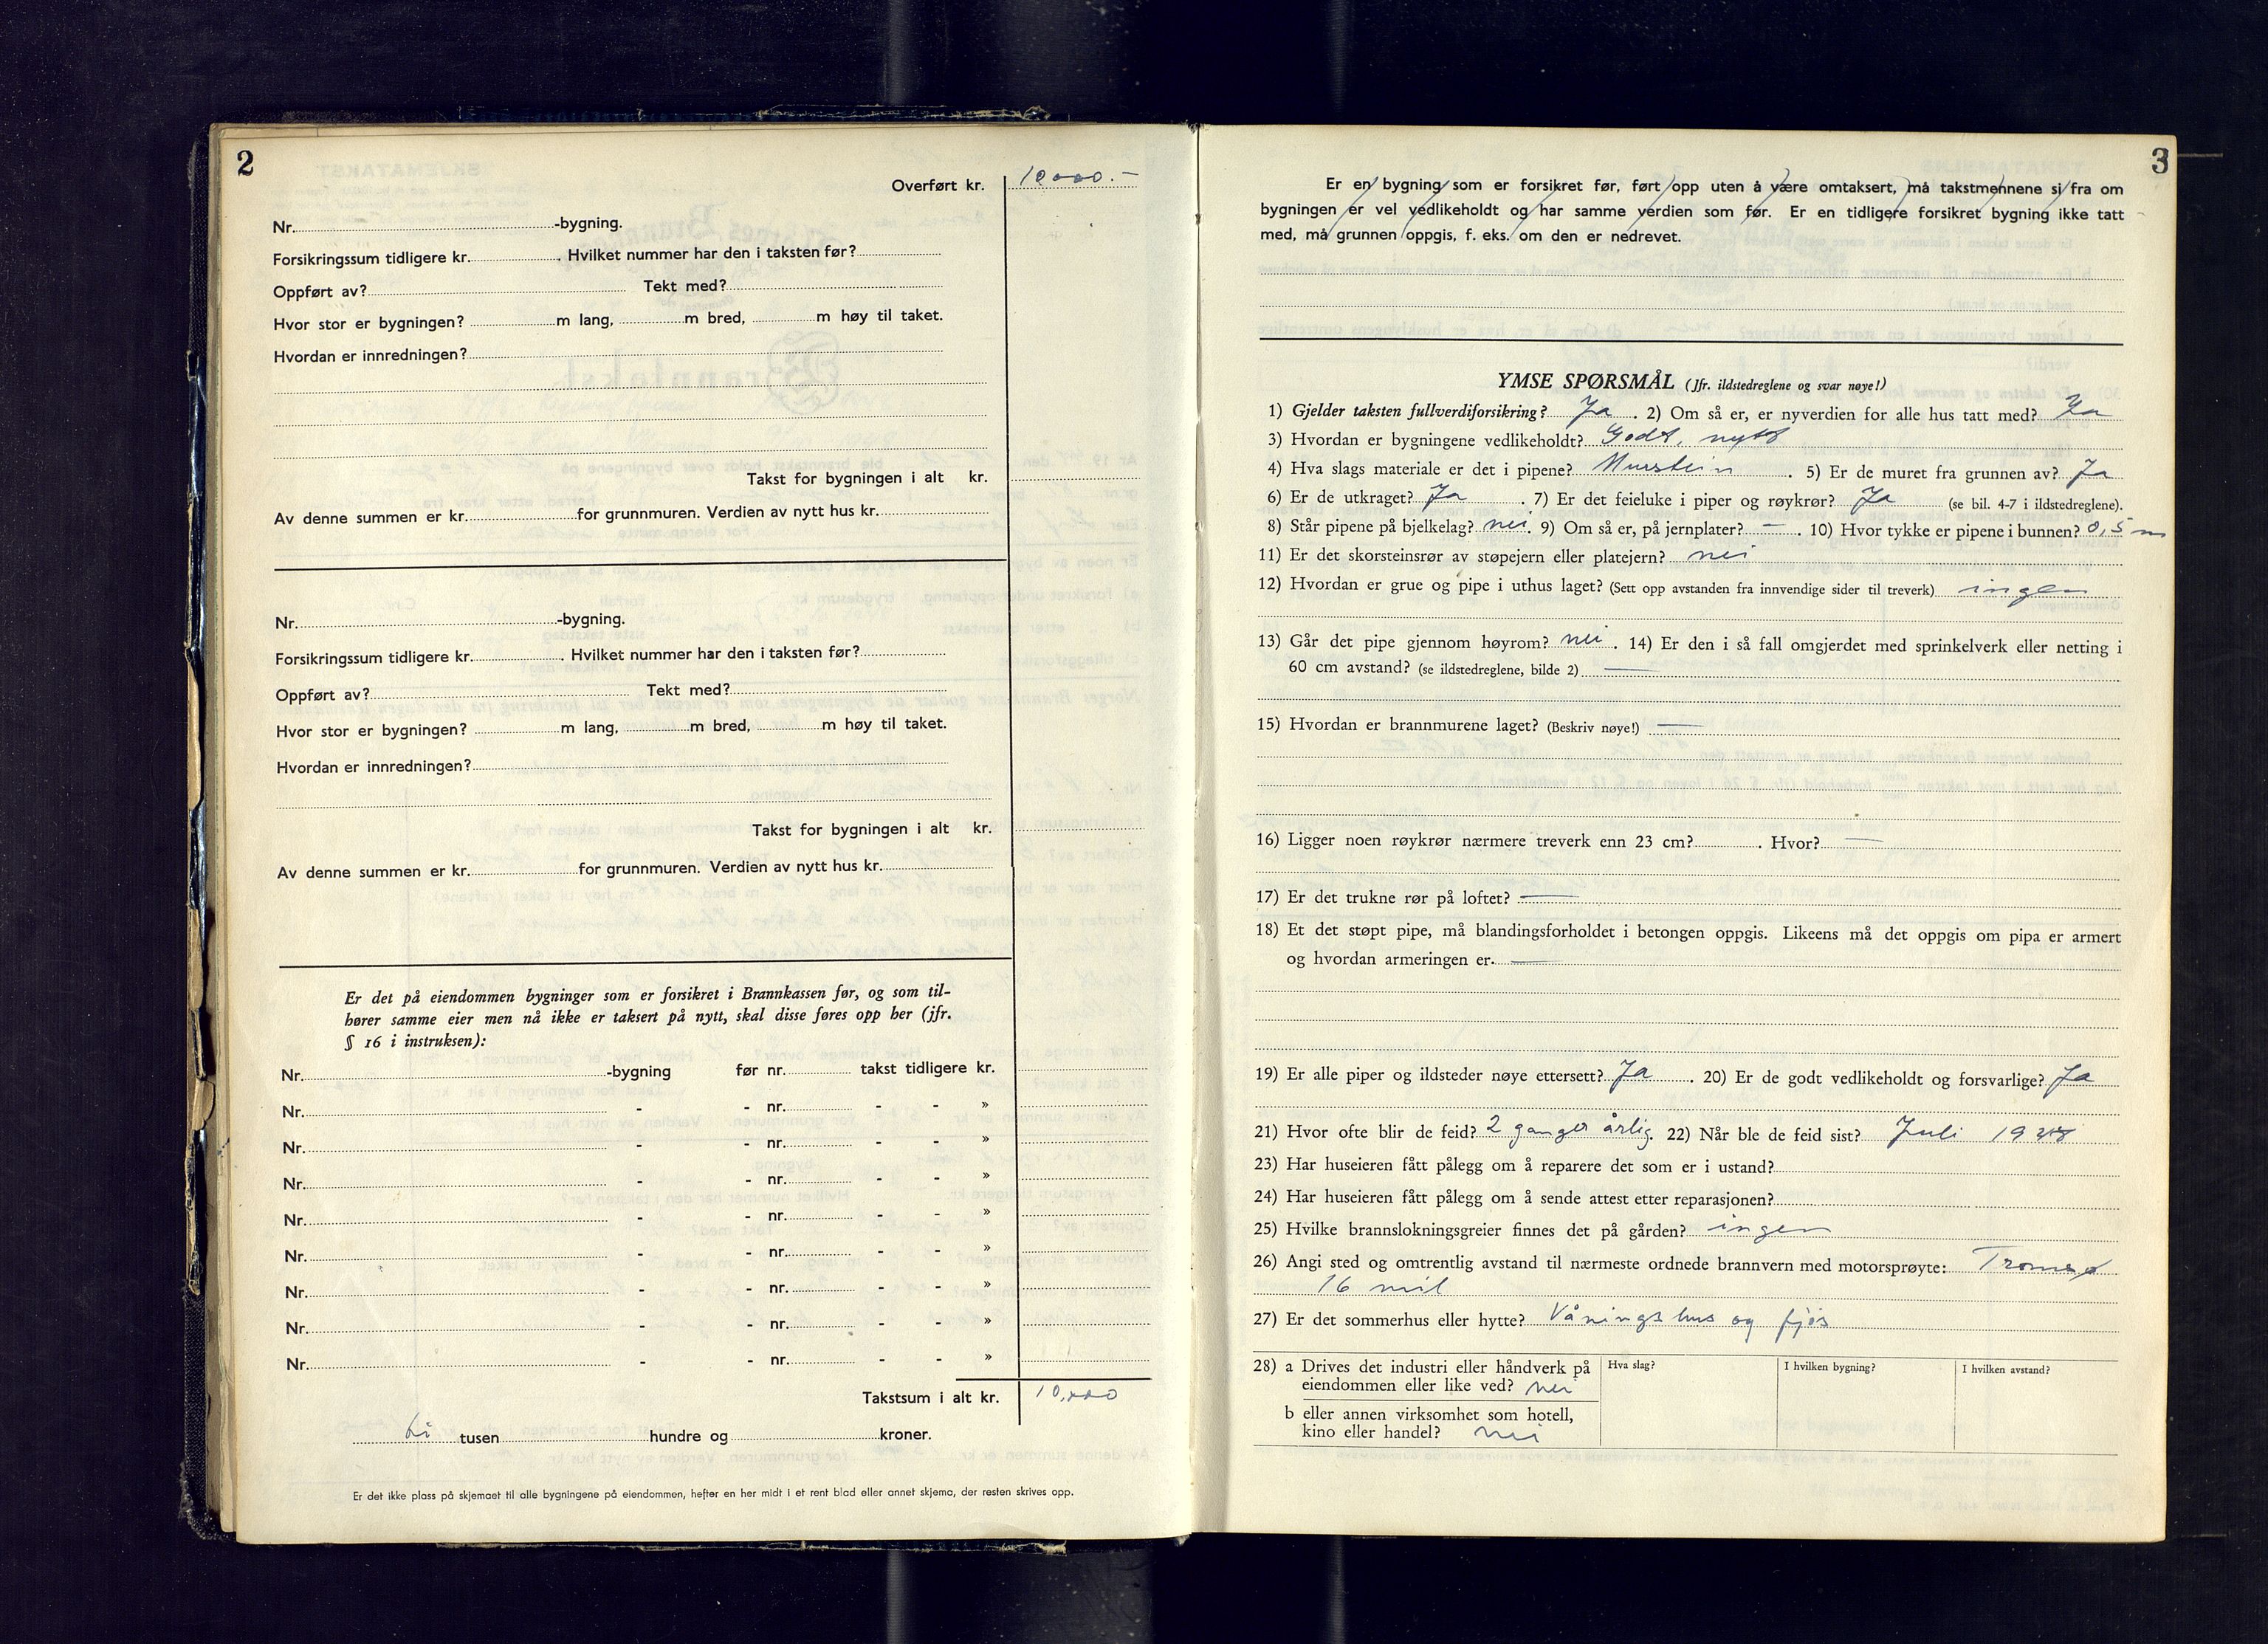 2
Overført kr. 10000.-
Nr. -bygning.
Forsikringssum tidligere kr. . Hvilket nummer har den i taksten før?
Oppført av? Tekt med?
Hvor stor er bygningen? m lang, m bred, m høy til taket.
Hvordan er innredningen?
Takst for bygningen i alt kr.
Av denne summen er kr. for grunnmuren. Verdien av nytt hus kr.
Nr. -bygning.
Forsikringssum tidligere kr. . Hvilket nummer har den i taksten før?
Oppført av? Tekt med?
Hvor stor er bygningen? m lang, m bred, m høy til taket.
Hvordan er innredningen?
Takst for bygningen i alt kr.
Av denne summen er kr. for grunnmuren. Verdien av nytt hus kr.
Er det på eiendommen bygninger som er forsikret i Brannkassen før, og som til-
hører samme eier men nå ikke er taksert på nytt, skal disse føres opp her (jfr.
§ 16 i instruksen):
Nr. -bygning før nr. takst tidligere kr.
Nr. - - nr. - - »
Nr. - - nr. - - »
Nr. - - nr. - - »
Nr. - - nr. - - »
Nr. - - nr. - - »
Nr. - - nr. - - »
Nr. - - nr. - - »
Nr. - - nr. - - »
Takstsum i alt kr. 10,000
ti tusen hundre og kroner.
Er det ikke plass på skjemaet til alle bygningene på eiendommen, hefter en her midt i et rent blad eller annet skjema, der resten skrives opp.
3
Er en bygning som er forsikret før, ført opp uten å være omtaksert, må takstmennene si fra om
bygningen er vel vedlikeholdt og har samme verdien som før. Er en tidligere forsikret bygning ikke tatt
med, må grunnen oppgis, f. eks. om den er nedrevet.
YMSE SPØRSMÅL (Jfr. ildstedreglene og svar nøye!)
1) Gjelder taksten fullverdiforsikring? Ja . 2) Om så er, er nyverdien for alle hus tatt med? Ja
3) Hvordan er bygningene vedlikeholdt? Godt, nytt
4) Hva slags materiale er det i pipene? Murstein . 5) Er de muret fra grunnen av? Ja
6) Er de utkraget? Ja . 7) Er det feieluke i piper og røykrør? Ja (se bil. 4-7 i ildstedreglene).
8) Står pipene på bjelkelag? nei. 9) Om så er, på jernplater? — . 10) Hvor tykke er pipene i bunnen? 0,5 m
11) Er det skorsteinsrør av støpejern eller platejern? nei
12) Hvordan er grue og pipe i uthus laget? (Sett opp avstanden fra innvendige sider til treverk) ingen
13) Går det pipe gjennom høyrom? nei . 14) Er den i så fall omgjerdet med sprinkelverk eller netting i
60 cm avstand? (se ildstedreglene, bilde 2) —
15) Hvordan er brannmurene laget? (Beskriv nøye!) —
16) Ligger noen røykrør nærmere treverk enn 23 cm? . Hvor? —
17) Er det trukne rør på loftet? —
18) Et det støpt pipe, må blandingsforholdet i betongen oppgis. Likeens må det oppgis om pipa er armert
og hvordan armeringen er. —
19) Er alle piper og ildsteder nøye ettersett? Ja . 20) Er de godt vedlikeholdt og forsvarlige? Ja
21) Hvor ofte blir de feid? 2 ganger årlig. 22) Når ble de feid sist? Juli
23) Har huseieren fått pålegg om å reparere det som er i ustand?
24) Har huseieren fått pålegg om å sende attest etter reparasjonen?
25) Hvilke brannslokningsgreier finnes det på gården? ingen
26) Angi sted og omtrentlig avstand til nærmeste ordnede brannvern med motorsprøyte: Tromsø
16 mil
27) Er det sommerhus eller hytte? Våningshus og fjøs
28) a Drives det industri eller håndverk på
eiendommen eller like ved? nei
Hva slag? I hvilken bygning? I hvilken avstand?
b eller annen virksomhet som hotell,
kino eller handel? nei